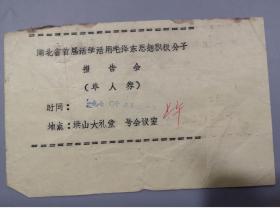 湖北省首届活学活用毛泽东思想积极分子
报告会
(单人券)
时间:
地点:洪山大礼堂 号会议室